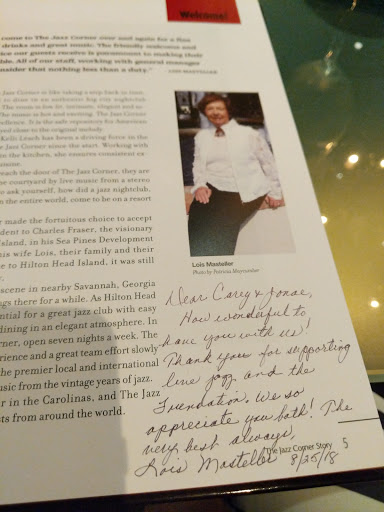 Welcome!
come to The Jazz Corner over and again for a fine
drinks and great music. The friendly welcome and
ice our guests receive is paramount to making their
ble. All of our staff, working with general manager
nsider that nothing less than a duty." LOIS MASTELLER
Jazz Corner is like taking a step back in time,
The music is hot and exciting. The Jazz Corner
cellence. It is the safe repository for American
yed close to the original melody.
Kelli Leach has been a driving force in the
Jazz Corner since the start. Working with
in the kitchen, she ensures consistent ex-
reach the door of The Jazz Corner, they are
he courtyard by live music from a stereo
to ask yourself, how did a jazz nightclub,
n the entire world, come to be on a resort
made the fortuitous choice to accept
dent to Charles Fraser, the visionary
Island, in his Sea Pines Development
his wife Lois, their family and their
e to Hilton Head Island, it was still
y.
scene in nearby Savannah, Georgia
ngs there for a while. As Hilton Head
ential for a great jazz club with easy
dining in an elegant atmosphere. In
rner, open seven nights a week. The
rience and a great team effort slowly
the premier local and international
usic from the vintage years of jazz.
r in the Carolinas, and The Jazz
sts from around the world.
Lois Masteller
Photo by Patricia
Dear Carey &
How wonderful to
have you with us!
Thank you for supporting
live jazz and the
Foundation. We so
appreciate you both! The
very best always,
Lois Masteller 8/25/18
The Jazz Corner Story 5